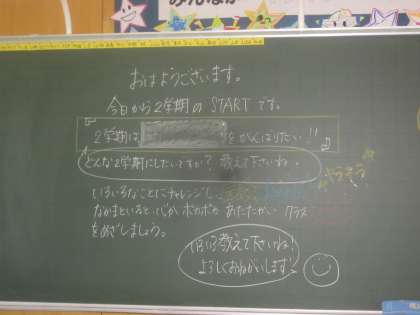 おはようございます。
今日から2学期の STARTです。
『2学期は をがんばりたい!!』
どんな2学期にしたいですか?教えて下さいね。
いろいろなことにチャレンジし
なかまといると ポカポカ あたたかい クラス
をめざしましょう。
教えて下さいね!
よろしくおねがいします